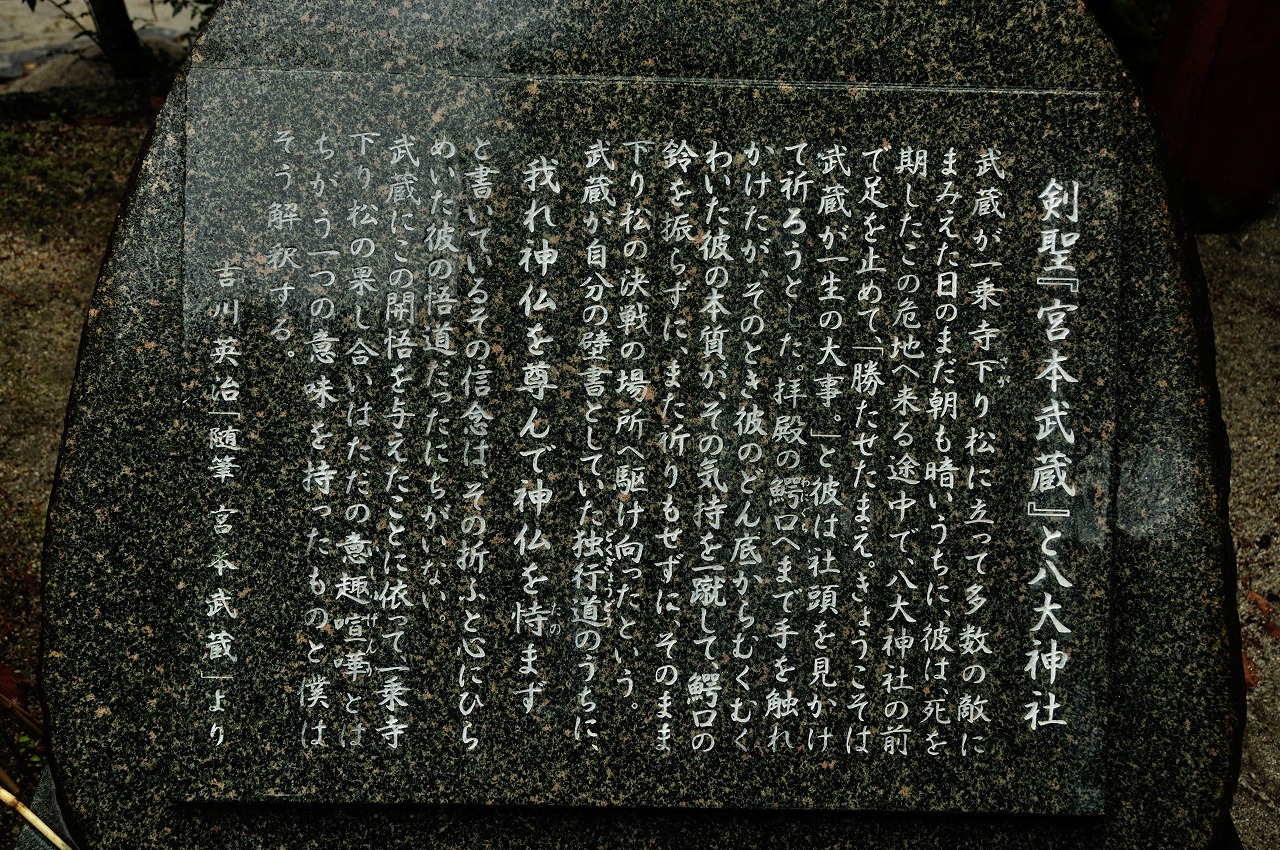 剣聖『宮本武蔵』と八大神社
武蔵が一乗寺下り松に立って多数の敵に
まみえた日のまだ朝も暗いうちに、彼は、死を
期したこの危地へ来る途中で、八大神社の前
で足を止めて、「勝たせたまえ。きょうこそは
武蔵が一生の大事。」と彼は社頭を見かけ
て祈ろうとした。拝殿の鰐口へまで手を触れ
かけたが、そのとき彼のどん底からむくむく
わいた彼の本質が、その気持を一蹴して、鰐口の
鈴を振らずに、また祈りもせずに、そのまま
下り松の決戦の場所へ駆け向ったという。
武蔵が自分の壁書としていた独行道のうちに、
我れ神仏を尊んで神仏を恃まず
と書いているその信念は、その折ふと心にひら
めいた彼の悟道だったにちがいない。
武蔵にこの開悟を与えたことに依って一乗寺
下り松の果し合いはただの意趣喧嘩とは
ちがう一つの意味を持ったものと僕は
そう解釈する。
吉川英治「随筆 宮本武蔵」より